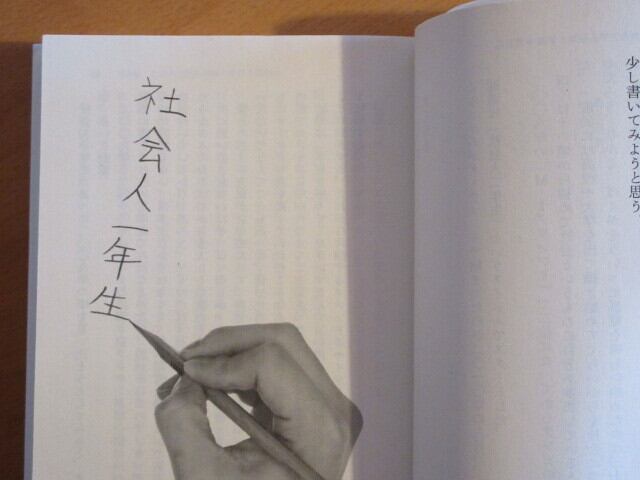 少し書いてみようと思う。
社会人一年生